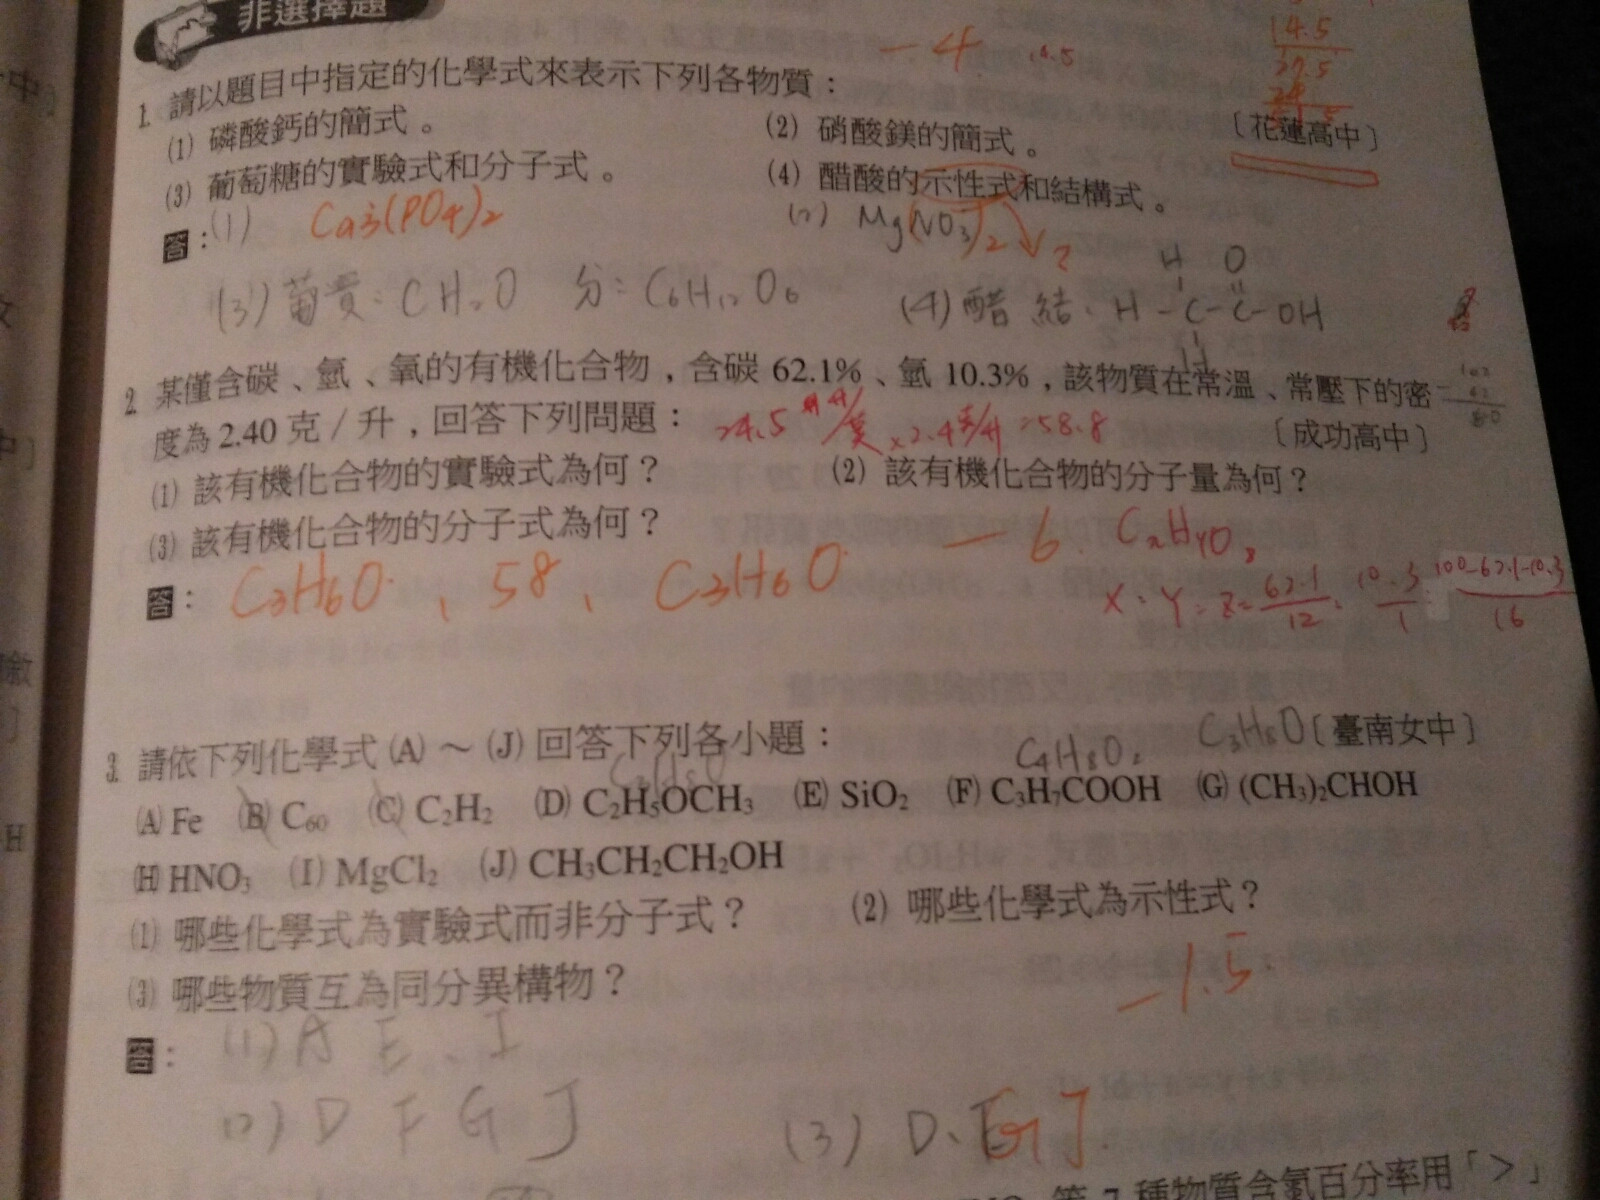 非選擇題
－4
14.5
1. 請以題目中指定的化學式來表示下列各物質：
(1) 磷酸鈣的簡式。 (2) 硝酸鎂的簡式。 〔花蓮高中〕
(3) 葡萄糖的實驗式和分子式。 (4) 醋酸的示性式和結構式。
答：(1) Ca3(PO4)2 (2) Mg(NO3)2
H O
(3) 葡實：CH2O 分：C6H12O6 (4) 醋 結：H－C－C－OH
H
2. 某僅含碳、氫、氧的有機化合物，含碳 62.1%、氫 10.3%，該物質在常溫、常壓下的密
度為 2.40 克／升，回答下列問題： 24.5 升/莫×2.4克/升=58.8 〔成功高中〕
(1) 該有機化合物的實驗式為何？ (2) 該有機化合物的分子量為何？
(3) 該有機化合物的分子式為何？
－6. CxHyOz
答：C3H6O、58、C3H6O
X：Y：Z=62.1/12：10.3/1：100-62.1-10.3/16
3. 請依下列化學式 (A)～(J) 回答下列各小題： C4H8O2 C3H8O〔臺南女中〕
C3H8O
(A) Fe (B) C60 (C) C2H2 (D) C2H5OCH3 (E) SiO2 (F) C3H7COOH (G) (CH3)2CHOH
(H) HNO3 (I) MgCl2 (J) CH3CH2CH2OH
(1) 哪些化學式為實驗式而非分子式？ (2) 哪些化學式為示性式？
(3) 哪些物質互為同分異構物？
－1.5
答：(1) A E、I
(2) D F G J (3) D、G J
第 7 種物質含氫百分率用「＞」